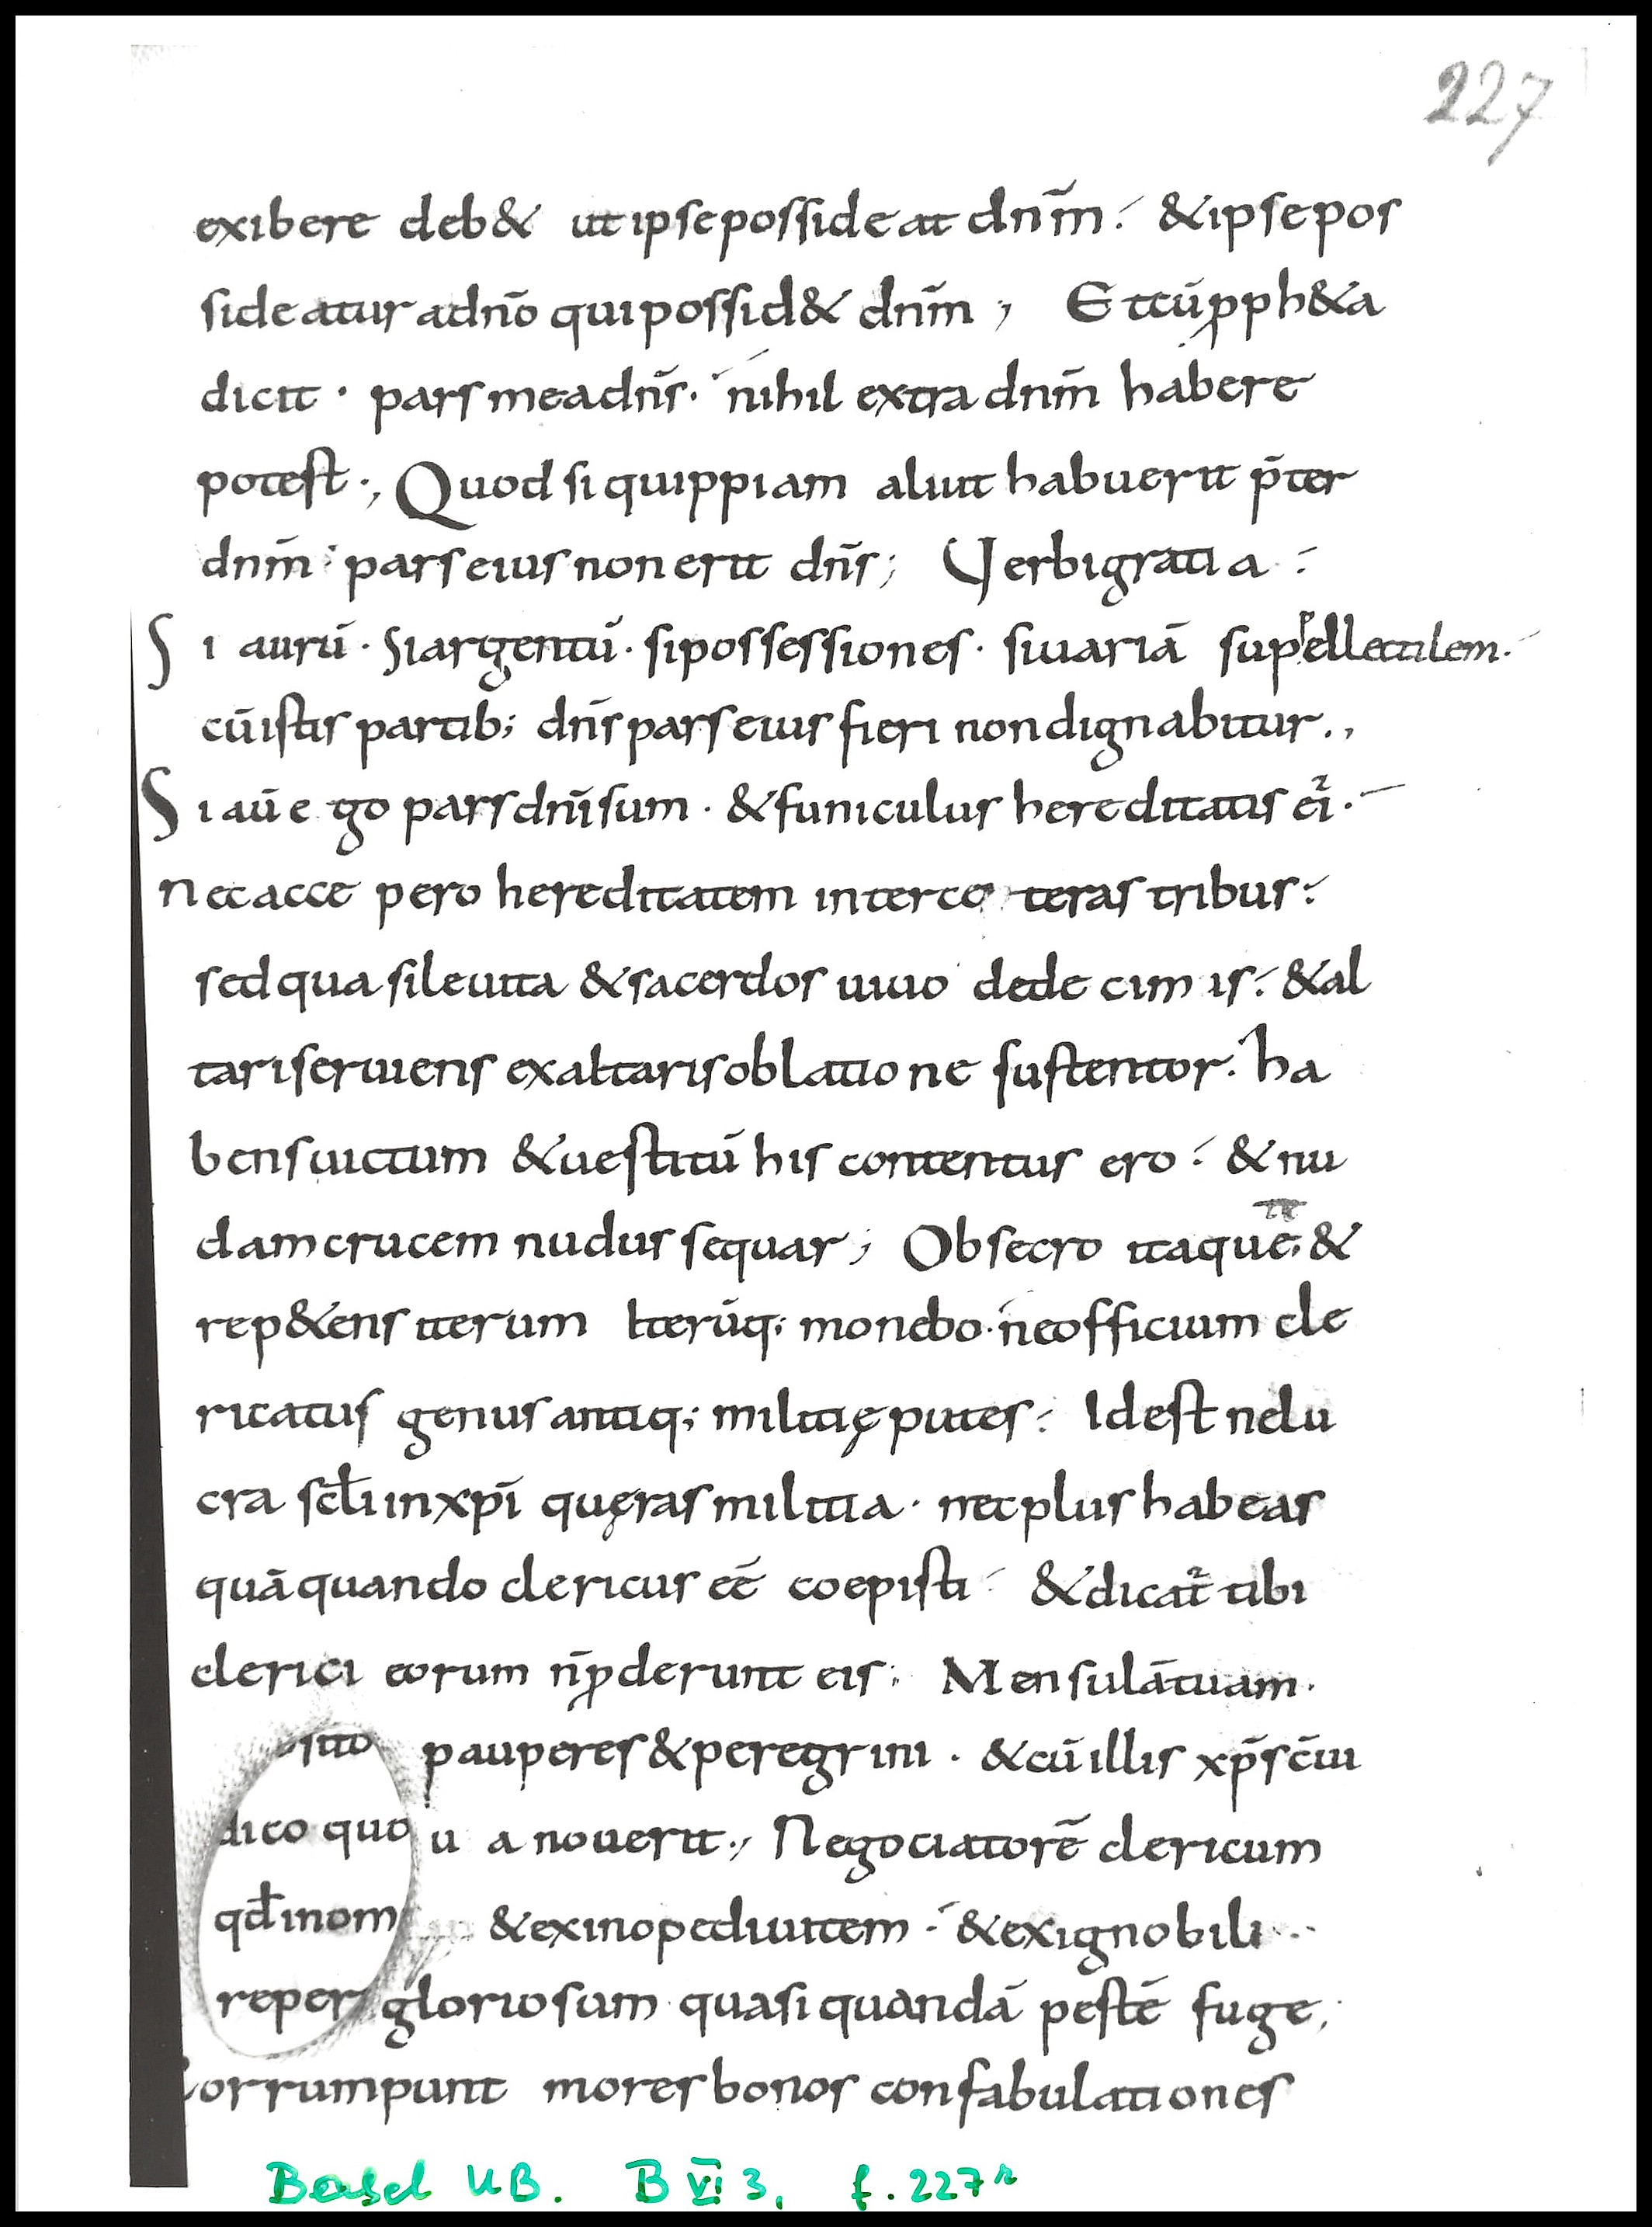 227
exibere deb& ut ipse possideat dnm̄. & ipse pos
sideatur adnō qui possid& dnm̄; Et cū pph&a
dicit · pars mea dns̄ · nihil extra dnm̄ habere
potest ·, Quod si quippiam aliut habuerit p̄ter
dnm̄ pars eius non erit dns̄; Verbi gratia ·
Si aurū · Si argentū · si possessiones · si uariā suppellectilem ·
cū istis partib; dns̄ pars eius fieri non dignabitur .,
Si aūe ego pars dnī sum · & funiculus hereditatis ei ·
nec accepero hereditatem inter ceteras tribus ·
sed quasi leuita & sacerdos uiuo de decimis · & al
tari seruiens ex altaris oblatione sustentor · ha
bens uictum & uestitū his contentus ero · & nu
dam crucem nudus sequar; Obsecro itaque te; &
rep&ens iterum Iterūq; monebo · ne officium cle
ricatus genus antiq; militię putes · Id est ne lu
cra scli in xpī quęras militia · nec plus habeas
quā quando clericus eē coepisti · & dicat̄ tibi
clerici eorum n̄ p̄derunt eis · Mensulā tuam ·
sito pauperes & peregrini · & cū illis xps̄ cūi
dico quo u a nouerit ·, Negociatorē clericum
qd̄ in om & ex inope diuitem · & ex ignobili
reper gloriosum quasi quandā pestē fuge;
Corrumpunt mores bonos confabulationes
Basel UB. B VI 3, f. 227r